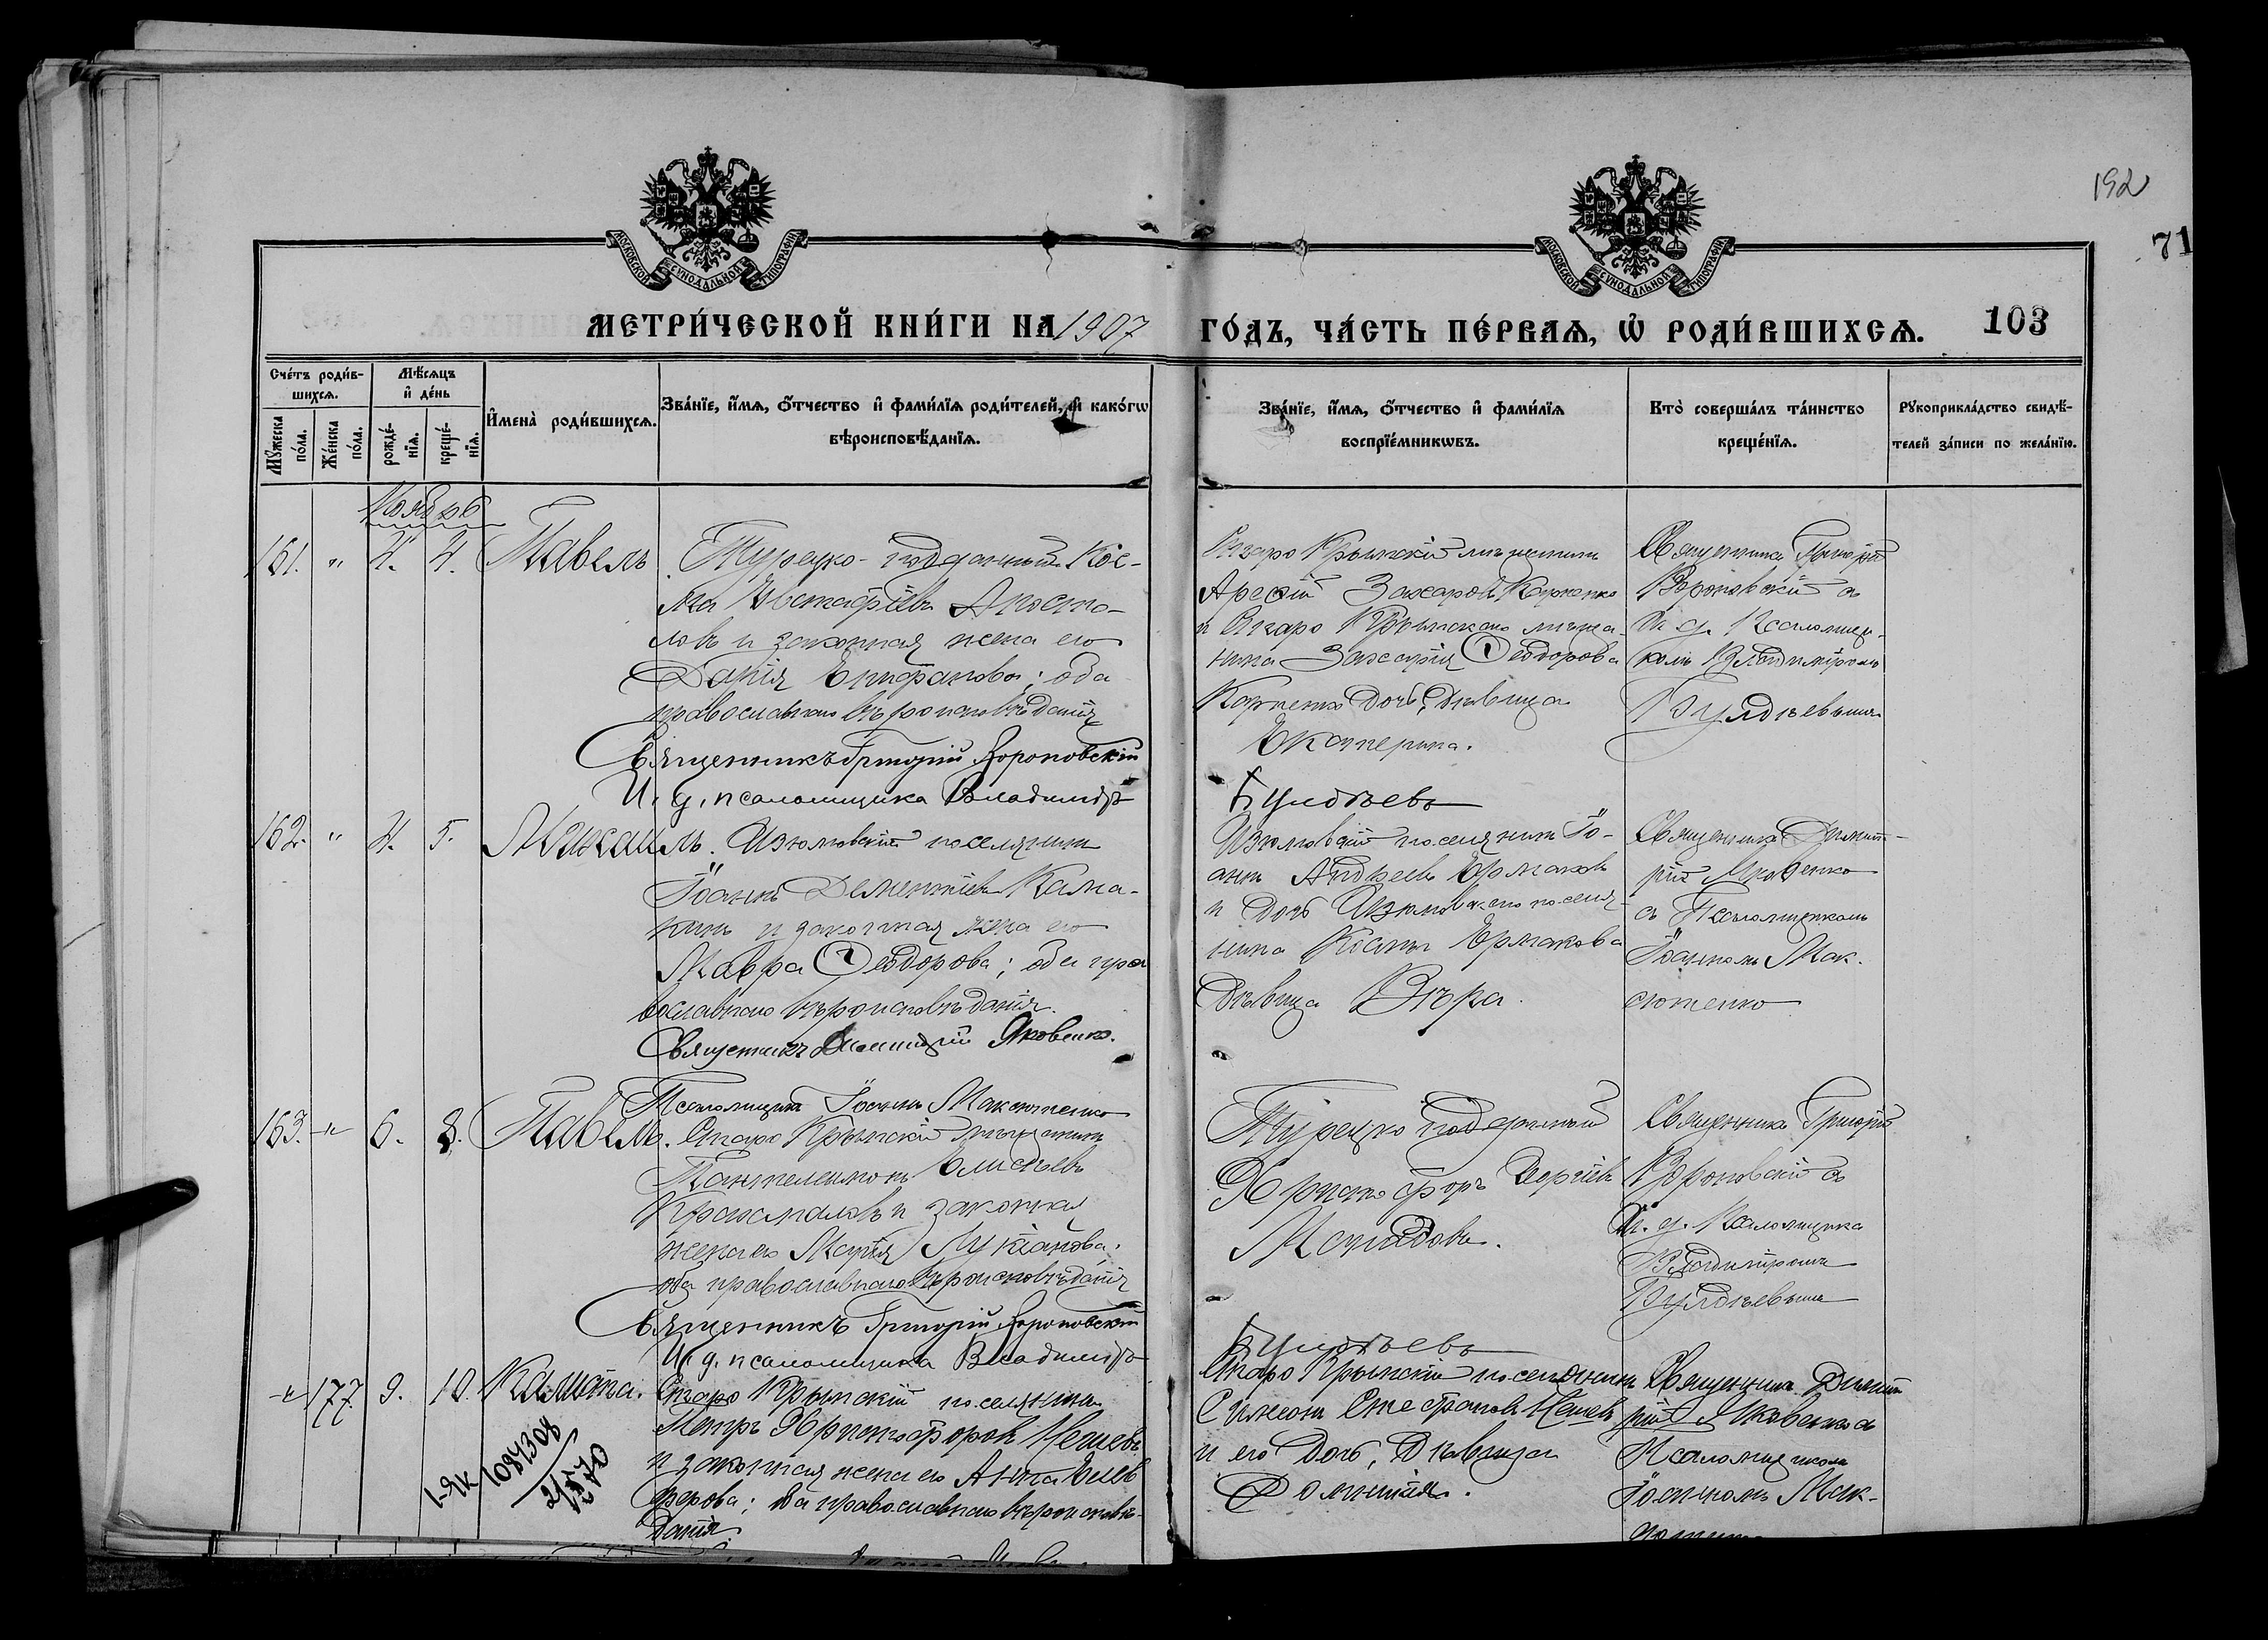 192
71
МОСКОВСКОЙ СУНОДАЛЬНОЙ ТИПОГРАФІИ
МОСКОВСКОЙ СУНОДАЛЬНОЙ ТИПОГРАФІИ
МЕТРИ́ЧЕСКОЙ КНИ́ГИ НА 1907
ГО́ДЪ, ЧА́СТЬ ПЕ́РВАѦ, Ѡ҆ РОДИ́ВШИХСѦ. 103
Сче́тъ роди́в-
шихсѧ.
Мꙋ́жеска по́ла.
Же́нска по́ла.
Мѣ́сѧцъ
и҆ де́нь
рожде́-
нїѧ.
креще́-
нїѧ.
И҆мена̀ роди́вшихсѧ.
Зва́нїе, и҆́мѧ, ѻ҆́тчество и҆ фами́лїѧ роди́телей, и҆ како́гѡ
вѣроисповѣ́данїѧ.
Зва́нїе, и҆́мѧ, ѻ҆́тчество и҆ фами́лїѧ
воспрїе́мникѡвъ.
Кто̀ соверша́лъ та́инство
креще́нїѧ.
Рꙋкоприкла́дство свидѣ́-
телей за́писи по жела́нїю.
Ноябрь
161. " 4. 4. Павелъ
Турецко-подданный Кос-
ма Евстафіевъ Апосто-
ловъ и законная жена его
Дарія Епифанова; оба
православнаго вѣроисповѣданія
Священникъ Григорій Вороновскій
И. д. псаломщика Владиміръ
Старо Крымскій мѣщанинъ
Захаровъ Карпенко
и Старо Крымскаго мѣща-
нина Захарія Ѳеодорова
Карпенко дочь, дѣвица
Екатерина.
Булдѣевъ
Священникъ Григорій
Вороновскій съ
И. д. Псаломщи-
комъ Владиміромъ
Булдѣевымъ
162. " 4. 5. Михаилъ.
Изюмовскій поселянинъ
Іоаннъ Дементіевъ Кала-
кинъ и законная жена его
Мавра Ѳеодорова; оба пра
вославнаго вѣроисповѣданія.
Священникъ Димитрій Яковенко.
Псаломщикъ Іоаннъ Максютенко
Изюмовскій поселянинъ Іо-
аннъ Андреевъ Ермаковъ
и дочь Изюмовскаго поселя-
нина Ермакова
дѣвица Вѣра.
Священникъ Димит-
рій Яковенко
съ Псаломщикомъ
Іоанномъ Мак-
сютенко
163. -"- 6. 8. Павелъ.
Старо Крымскій мѣщанинъ
Пантелеимонъ Елисѣевъ
и законная
жена его Марія Лукіанова;
оба православнаго вѣроисповѣданія
Священникъ Григорій Вороновскій
И. д. псаломщика Владиміръ
Турецко подданный
Христофоръ Георгіевъ
Булдѣевъ
Священникъ Григорій
Вороновскій съ
И. д. Псаломщика
Владиміромъ
Булдѣевымъ
-"- 177. 9. 10.
Старо Крымскій поселянинъ
Петръ Христофоровъ Нейчевъ
и законная жена его Анна Елев
ферова; оба православнаго вѣроисповѣ-
данія.
Старо Крымскій поселянинъ
Симеонъ Стефановъ
и его дочь, дѣвица
Домникія.
Священникъ Димит
рій Яковенко съ
Псаломщикомъ
Іоанномъ Мак-
сютенко
1-ЯК 1084308